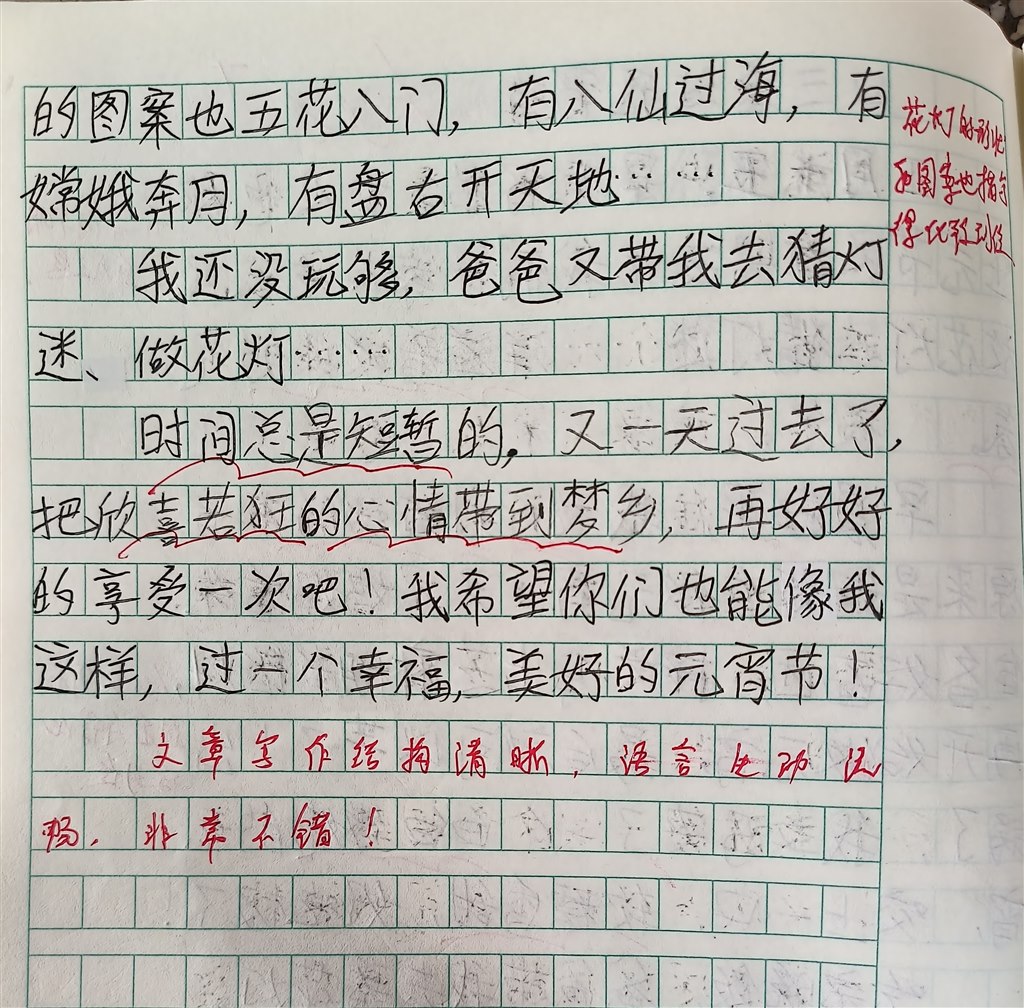 的图案也五花八门，有八仙过海，有
嫦娥奔月，有盘古开天地……
我还没玩够，爸爸又带我去猜灯
迷、做花灯……
时间总是短暂的。又一天过去了，
把欣喜若狂的心情带到梦乡，再好好
的享受一次吧！我希望你们也能像我
这样，过一个幸福，美好的元宵节！
文章写作结构清晰，语言生动流
畅，非常不错！
花灯的形状
和图案也描写
得比较到位